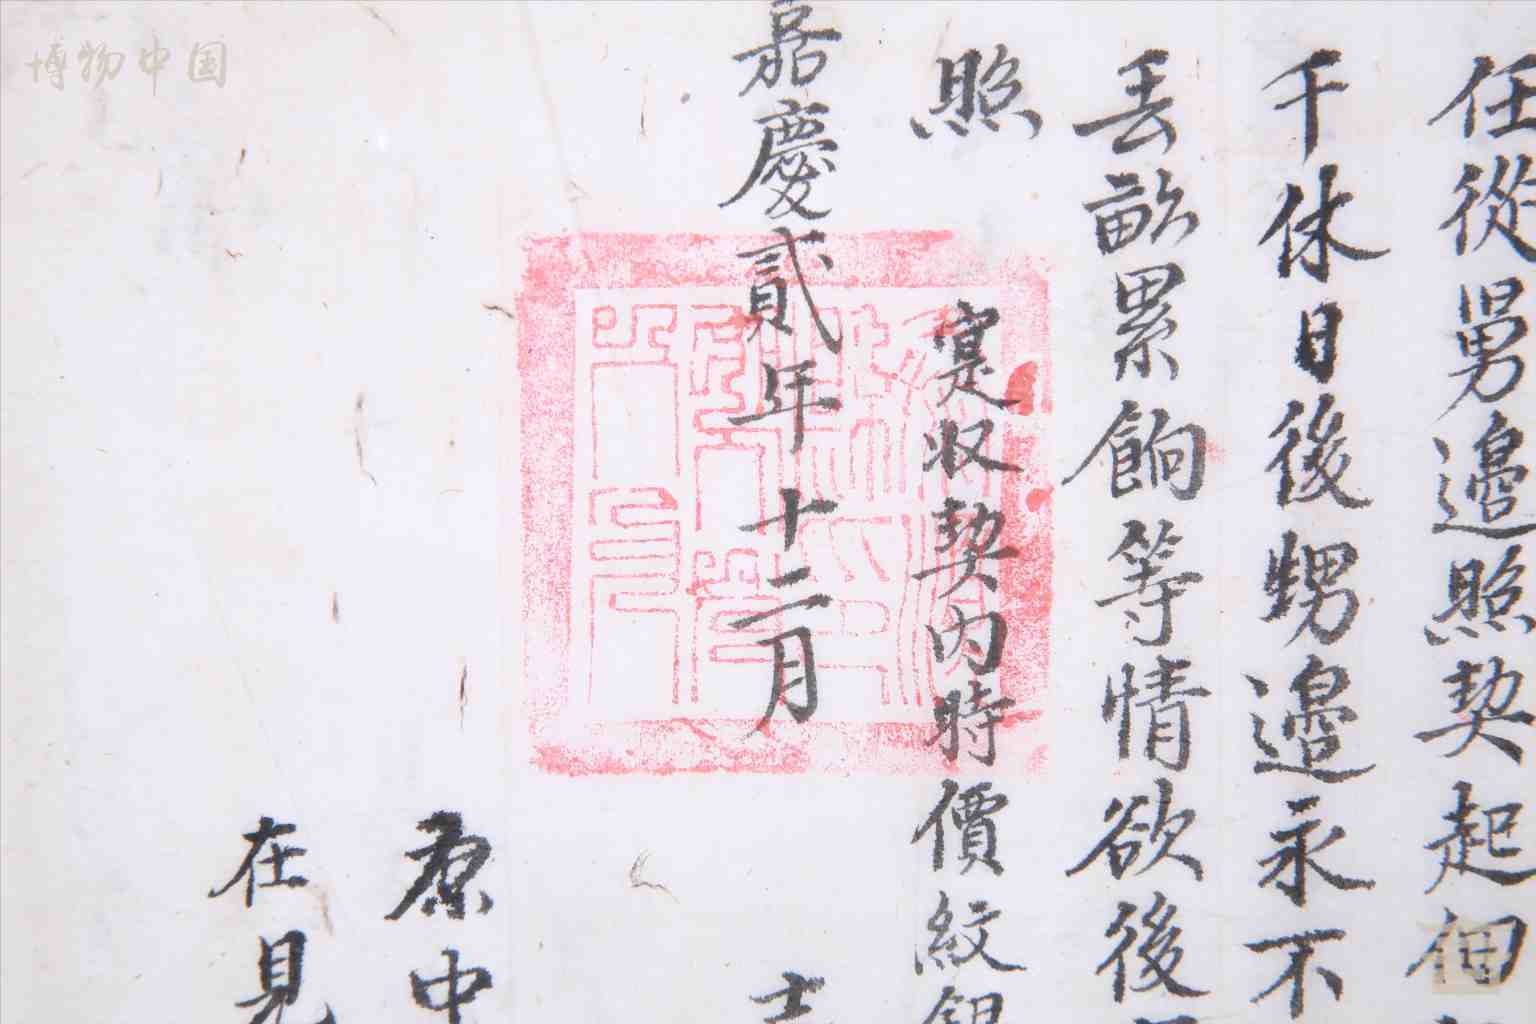 任從舅邊照契起佃
千休日後甥邉永不
丟畝累餉等情欲後
照
寔收契内時價紋銀
嘉慶貳年十二月
原中
在見
博物中国